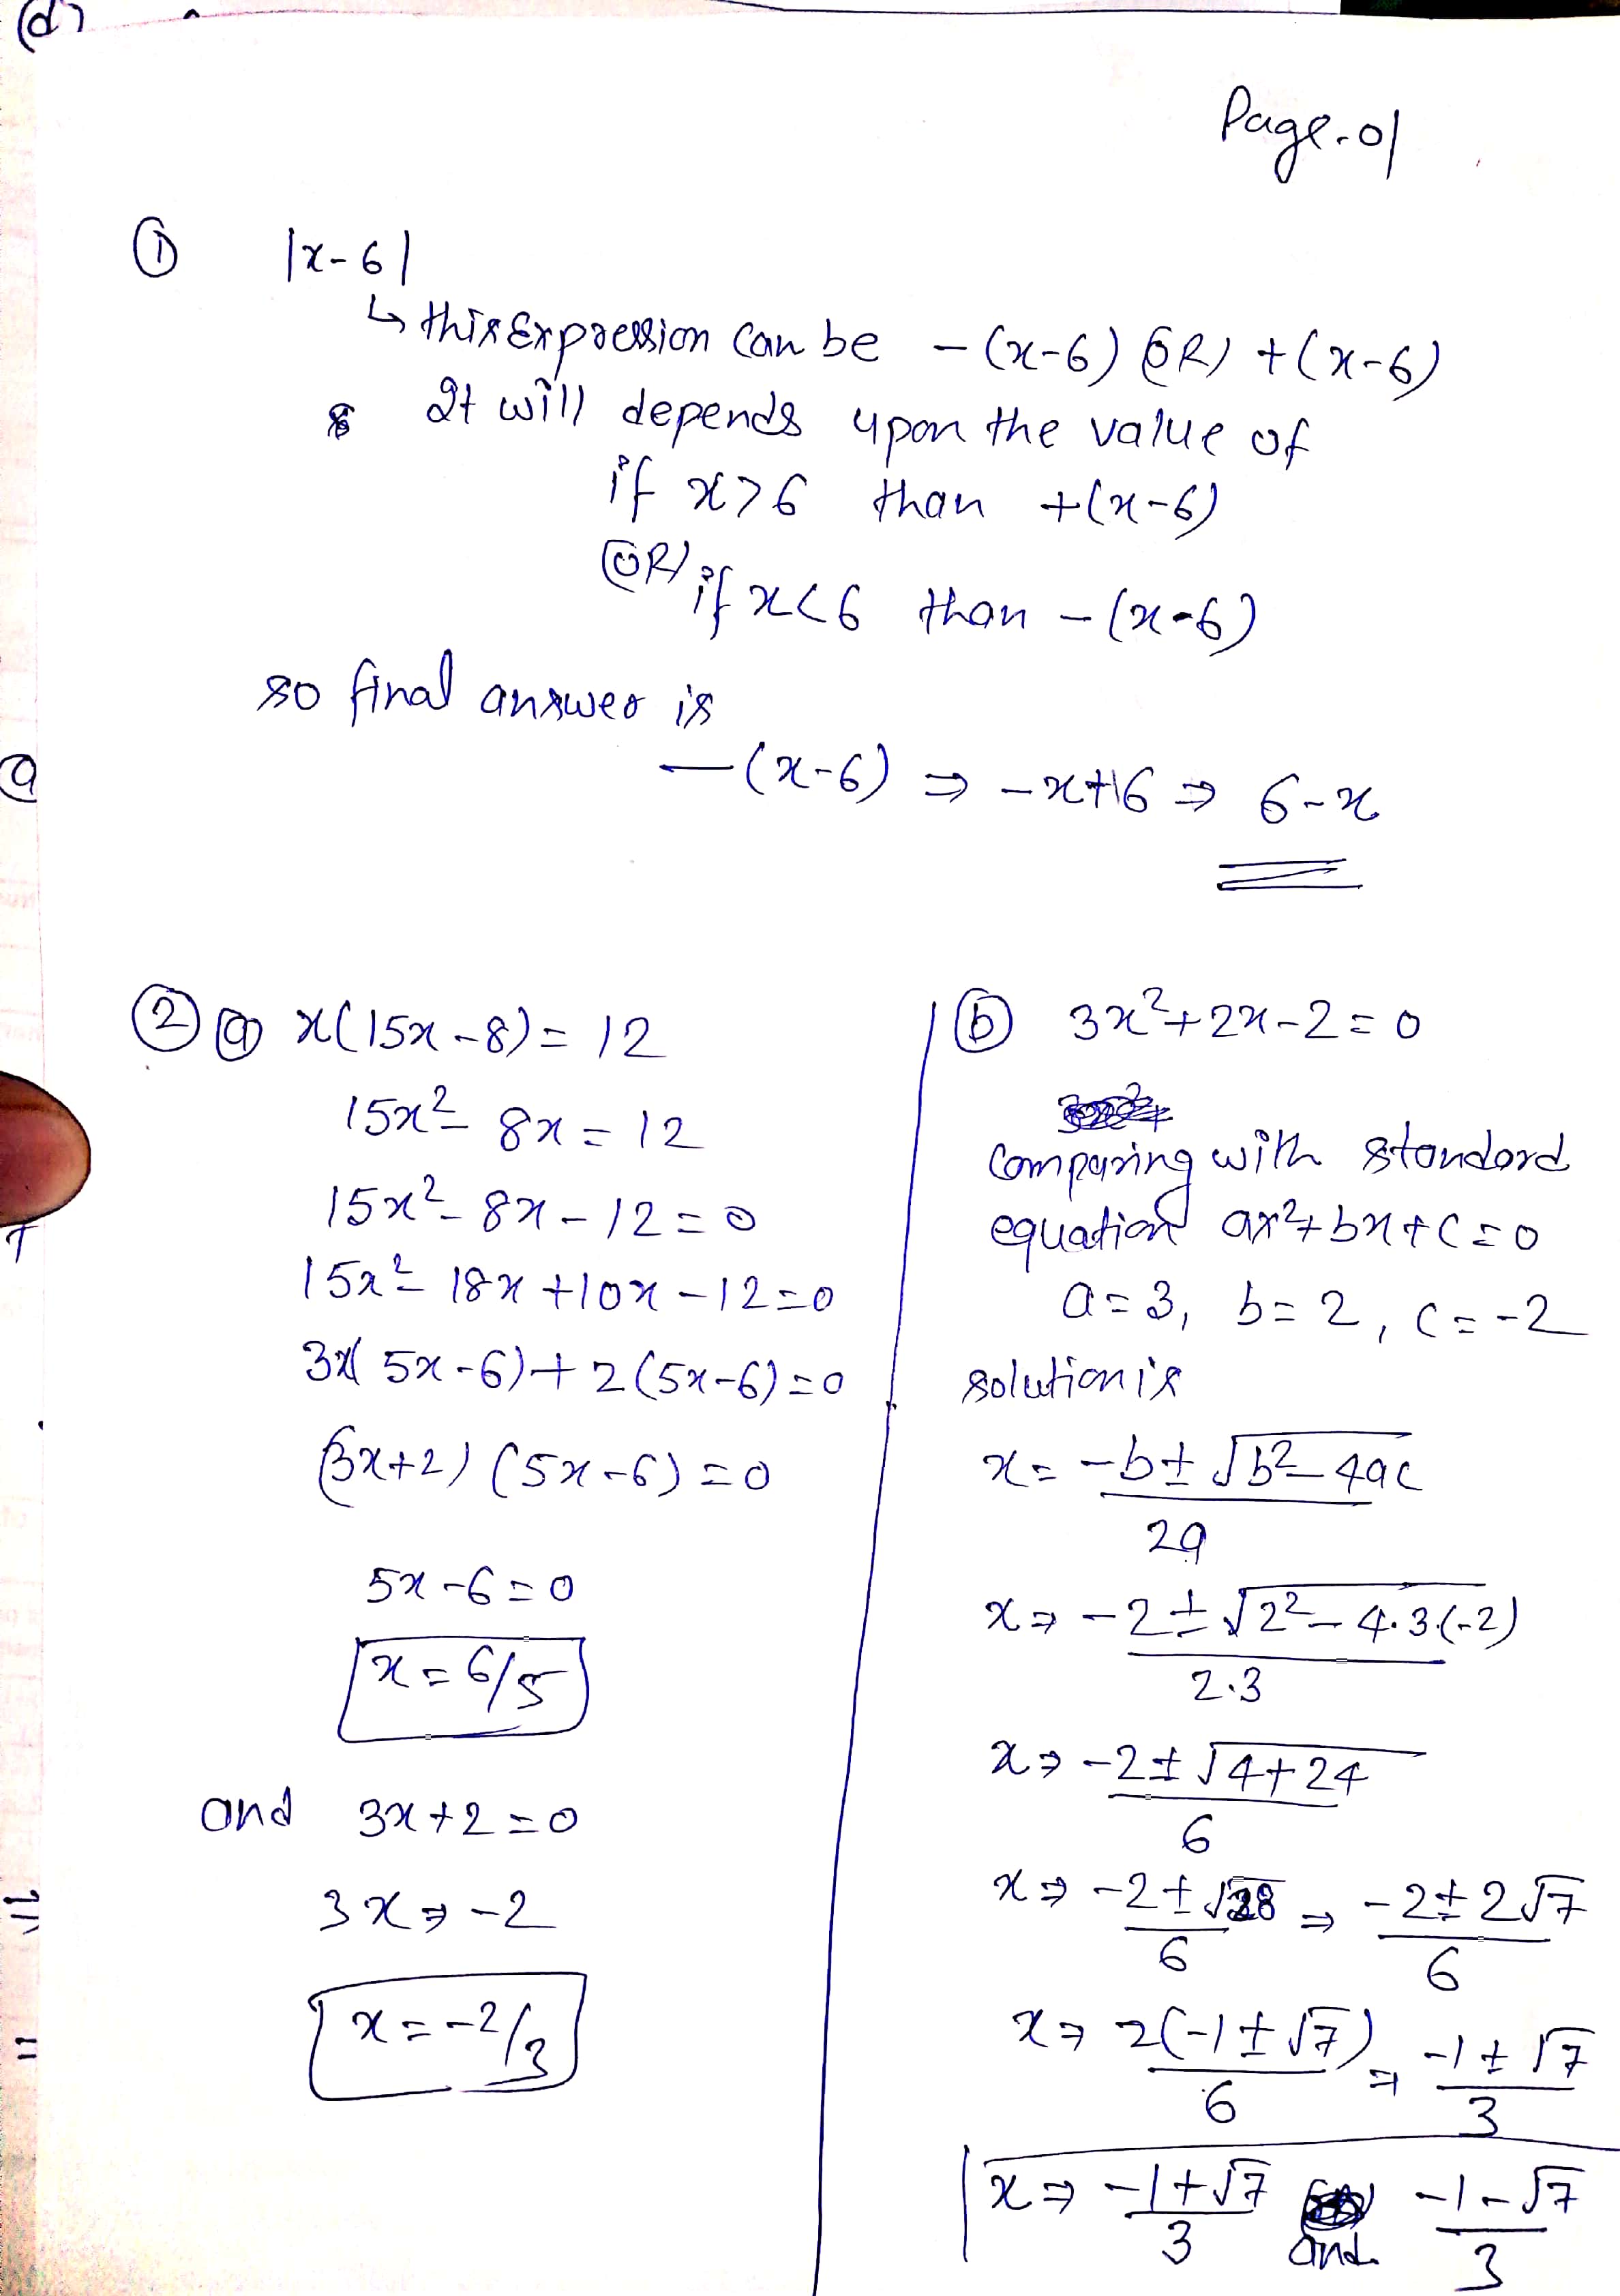 (d)
Page-01
① |x-6|
↳ this Expression can be -(x-6) (OR) +(x-6)
It will depends upon the value of
if x>6 than +(x-6)
(OR) if x<6 than -(x-6)
so final answer is
-(x-6) ⇒ -x+6 ⇒ 6-x
② ⓐ x(15x-8) = 12
15x² - 8x = 12
15x² - 8x - 12 = 0
15x² - 18x + 10x - 12 = 0
3x(5x-6) + 2(5x-6) = 0
(3x+2) (5x-6) = 0
5x-6 = 0
x = 6/5
and 3x+2 = 0
3x ⇒ -2
x = -2/3
ⓑ 3x²+2x-2 = 0
comparing with standard
equation ax²+bx+c = 0
a = 3, b = 2, c = -2
solution is
x = -b ± √b²-4ac
2a
x ⇒ -2 ± √2²-4.3.(-2)
2.3
x ⇒ -2 ± √4+24
6
x ⇒ -2 ± √28 ⇒ -2 ± 2√7
6 6
x ⇒ 2(-1 ± √7) ⇒ -1 ± √7
6 3
x ⇒ -1+√7 and -1-√7
3 3